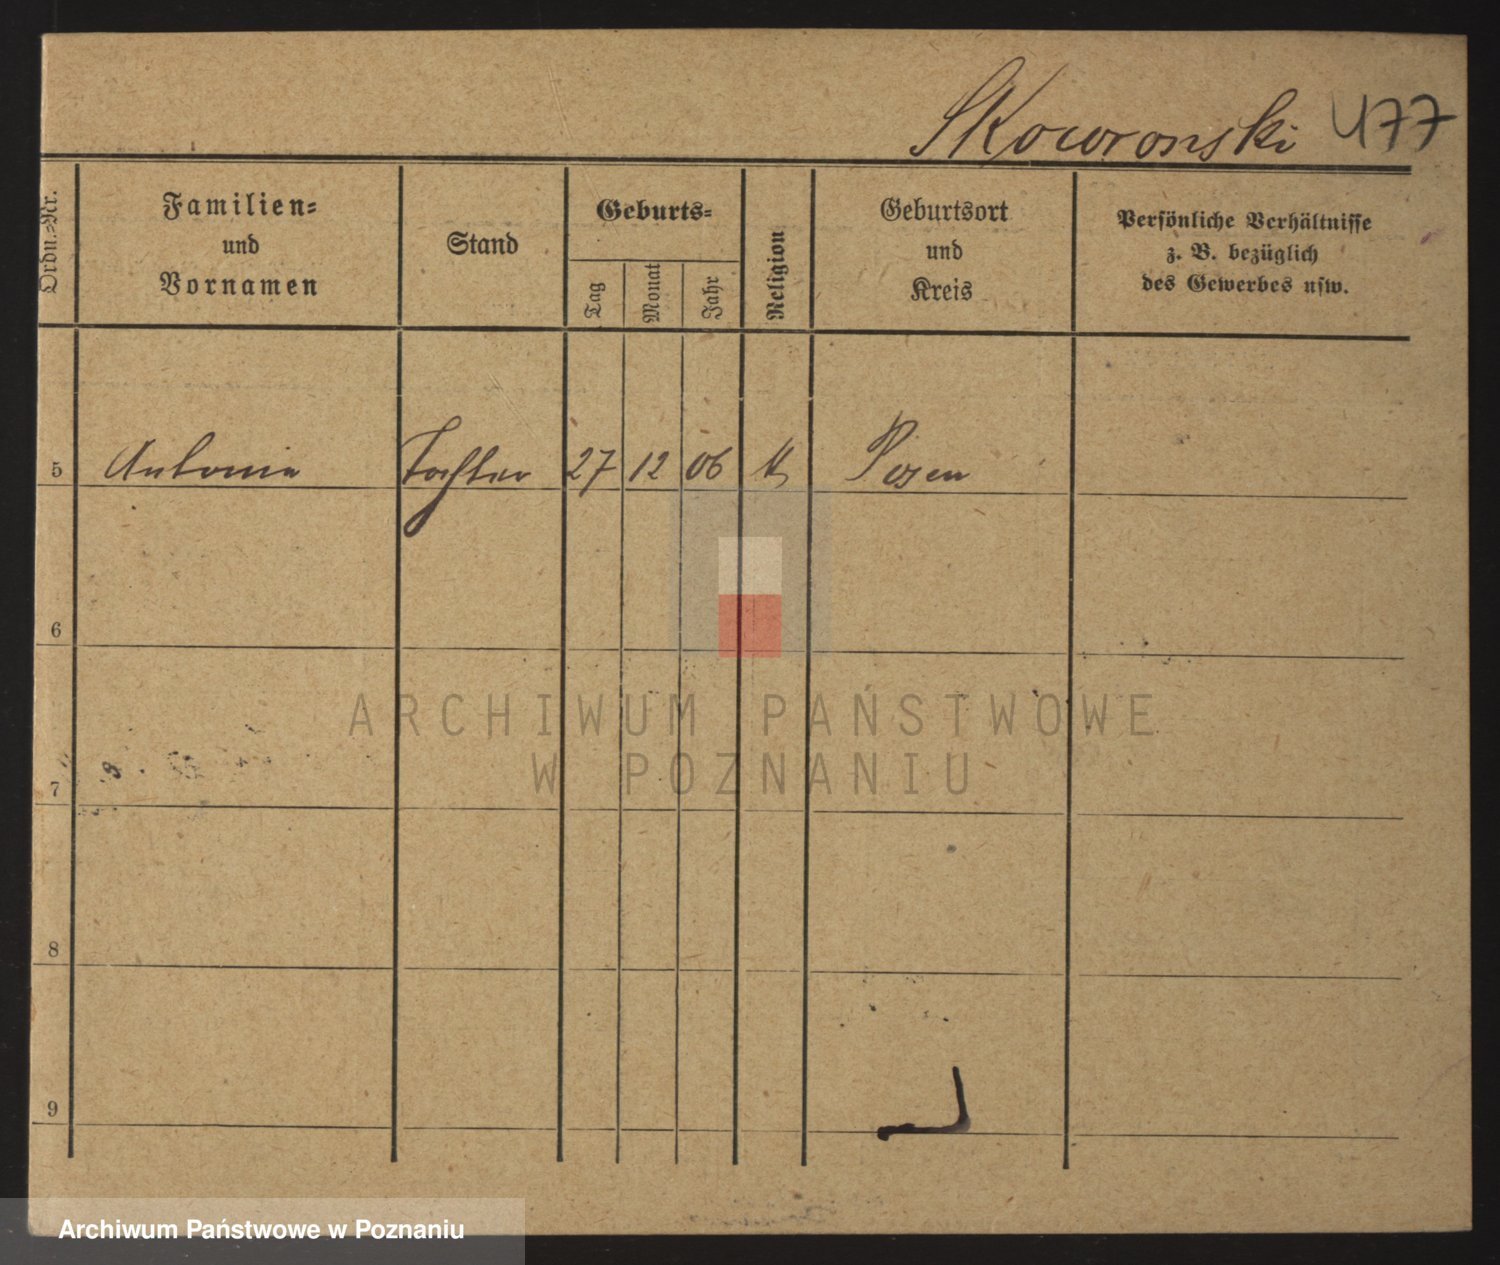 Skowronski 477
Ordn.-Nr.
Familien-
und
Vornamen
Stand
Geburts-
Tag
Monat
Jahr
Religion
Geburtsort
und
Kreis
Persönliche Verhältnisse
z. B. bezüglich
des Gewerbes usw.
5 Antonie Tochter 27 12 06 K Posen
6
7
8
9
ARCHIWUM PAŃSTWOWE
W POZNANIU
Archiwum Państwowe w Poznaniu